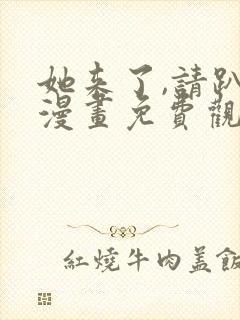 她来了,請趴
漫畫免費觀
紅燒牛肉蓋飯